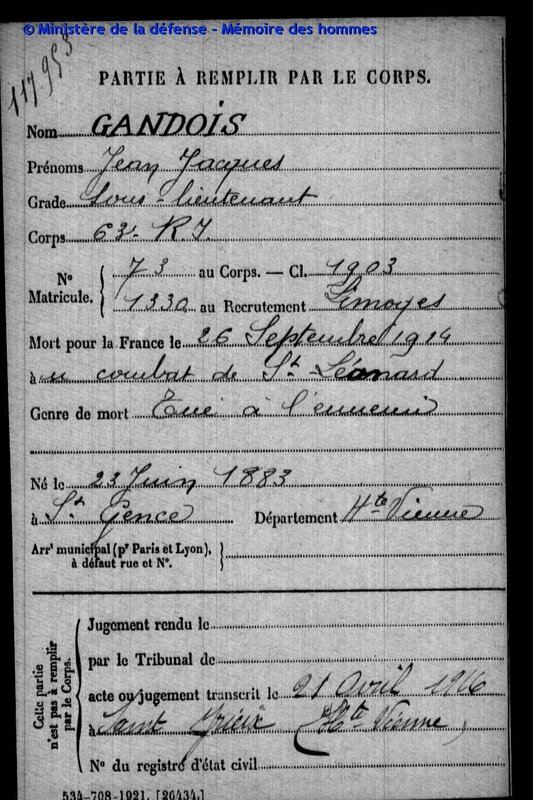 © Ministère de la défense - Mémoire des hommes
117.953
PARTIE À REMPLIR PAR LE CORPS.
Nom GANDOIS
Prénoms Jean Jacques
Grade Sous-lieutenant
Corps 63e R.I.
N° Matricule. { 73 au Corps. — Cl. 1903
1330 au Recrutement Limoges
Mort pour la France le 26 Septembre 1914
à u combat de St-Léonard
Genre de mort Tué à l'ennemi
Né le 23 Juin 1883
à St Gence Département Hte Vienne
Arrt municipal (pr Paris et Lyon), à défaut rue et N°. }
Cette partie n'est pas à remplir par le Corps.
Jugement rendu le
par le Tribunal de
acte ou jugement transcrit le 21 avril 1916
à Saint Yrieix (Hte Vienne)
N° du registre d'état civil
534-708-1921. [26434.]